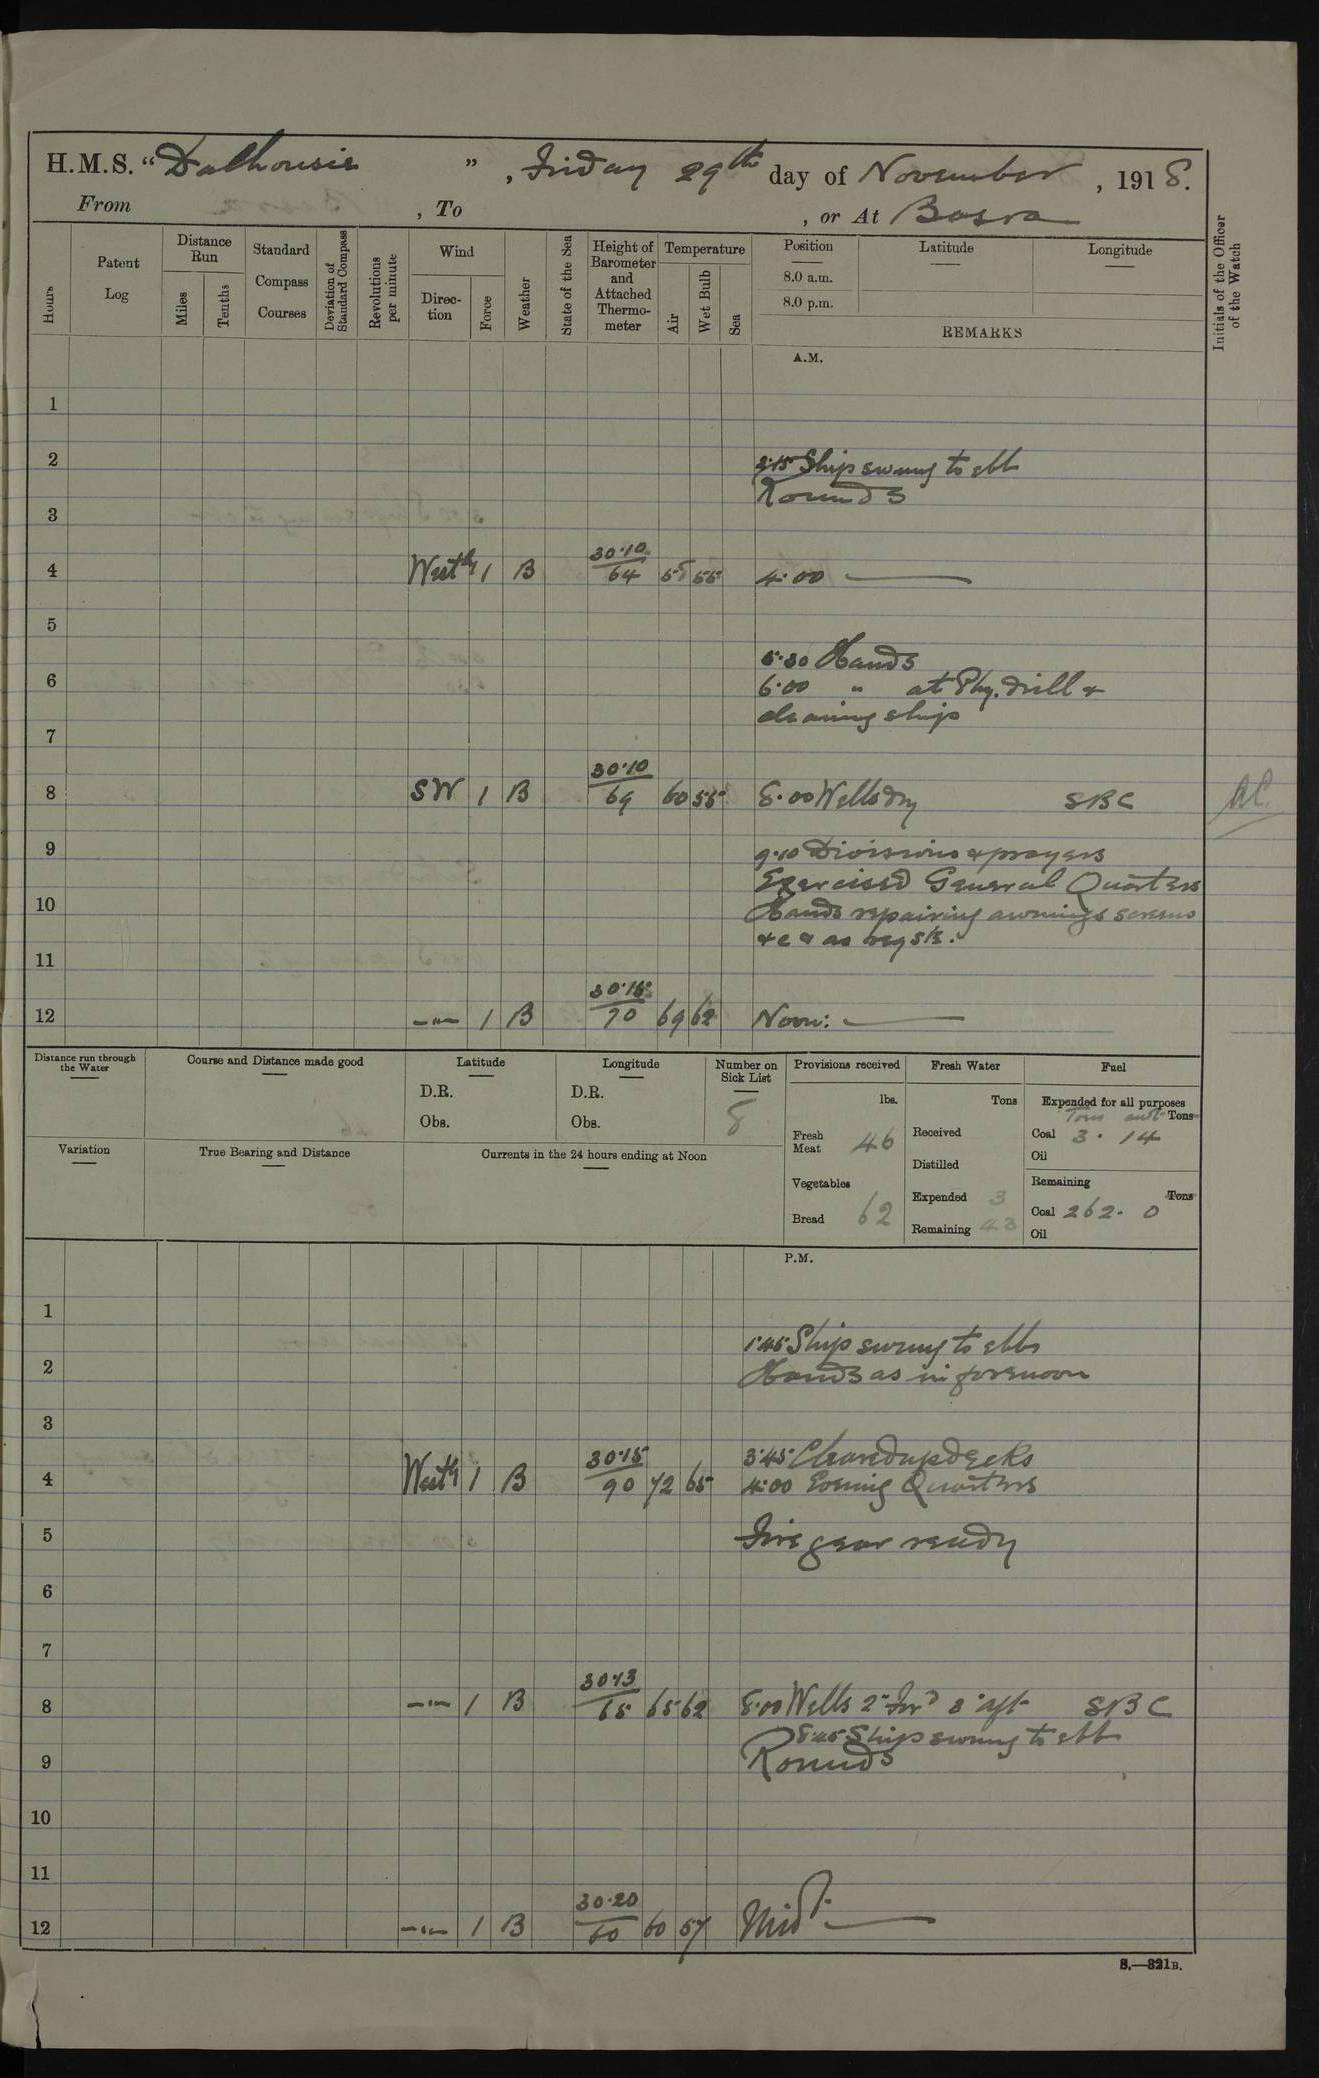 H.M.S. "Dalhousie", Friday 29th day of November, 1918.
From , To , or At Basra
Hours
Patent Log
Distance Run
Miles
Tenths
Standard Compass Courses
Deviation of Standard Compass
Revolutions per minute
Wind
Direction
Force
Weather
State of the Sea
Height of Barometer and Attached Thermometer
Temperature
Air
Wet Bulb
Sea
Position
8.0 a.m.
8.0 p.m.
Latitude
Longitude
REMARKS
Initials of the Officer of the Watch
A.M.
1
2 2.15 Ship swung to ebb
Rounds
3
4 Westly 1 B 30.10 64 55 4.00 —
5
5.30 Hands
6 6.00 " at Phy. drill &
cleaning ship
7
8 SW 1 B 30.10 69 60 55 8.00 Wells dry SBC
9 9.10 Divisions & prayers
Exercised General Quarters
10 Hands repairing awnings screens
&c & as reqste.
11
12 —"— 1 B 70 69 62 Noon: —
Distance run through the Water
Course and Distance made good
Latitude
D.R.
Obs.
Longitude
D.R.
Obs.
Number on Sick List
8
Provisions received
lbs.
Fresh Meat 46
Vegetables
Bread 62
Fresh Water
Tons
Received
Distilled
Expended 3
Remaining 43
Fuel
Expended for all purposes
Tons cwt Tons
Coal 3. 14
Oil
Remaining
Tons
Coal 262. 0
Oil
Variation
True Bearing and Distance
Currents in the 24 hours ending at Noon
P.M.
1
1.45 Ship swung to ebb
2 Hands as in forenoon
3
3.45 Cleared up decks
4 Westly 1 B 30.15 90 72 65 4.00 Evening Quarters
5 Fire gear ready
6
7
8 —"— 1 B 30.13 65 65 62 8.00 Wells 2" For'd 3" aft SBC
8.45 Ship swung to ebb
9 Rounds
10
11
12 —"— 1 B 30.20 60 60 57 Midt. —
S.—321B.